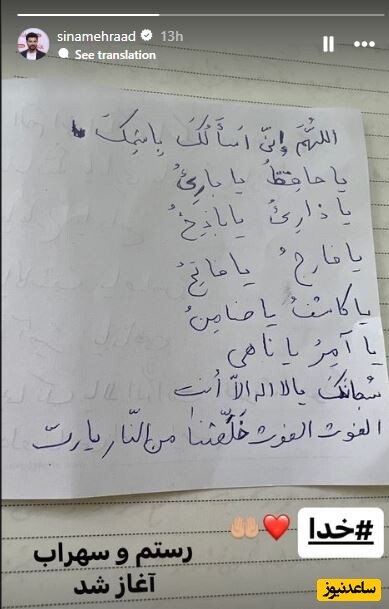 sinamehraad 13h
See translation
اللهُمَّ اِنّی اَسأَلُکَ بِاسْمِکَ
یا حافِظُ یا بارِئُ
یا ذارِئُ یا باذِخُ
یا فارِجُ یا فاتِحُ
یا کاشفُ یا ضامِنُ
یا آمِرُ یا ناهی
سُبحانَکَ یا لا اله الاّ أنت
الغوث الغوث خَلِّصْنا من النّار یا رب
#خدا
رستم و سهراب
آغاز شد
ساعدنیوز